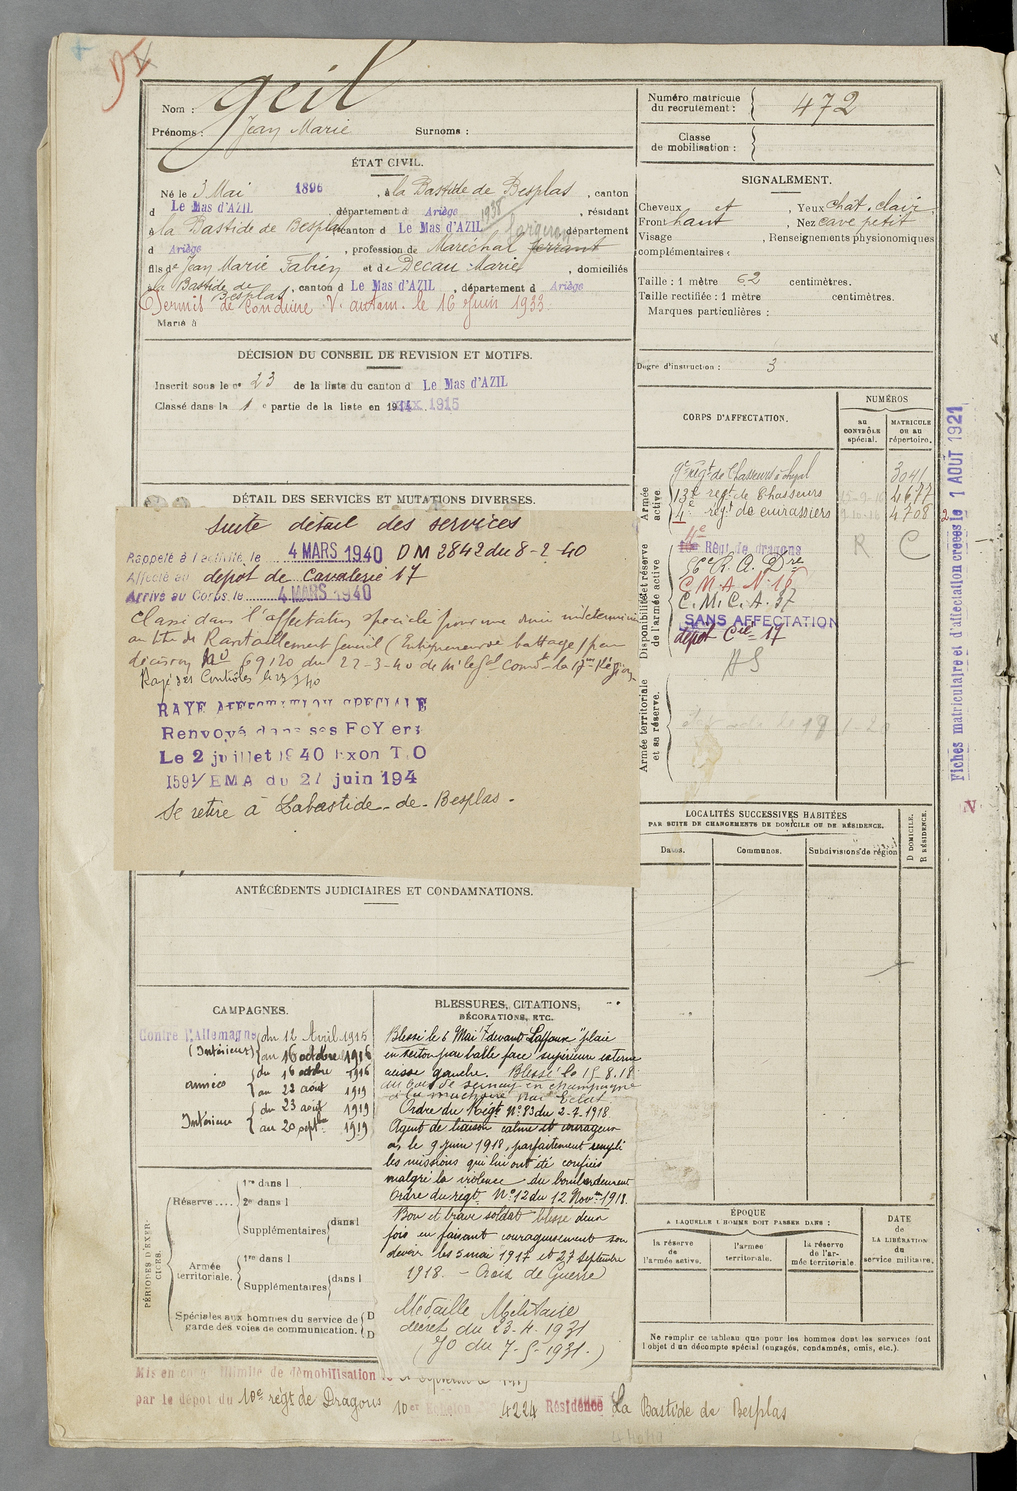 Nom : Geil
Prénoms : Jean Marie Surnoms :
Numéro matricule du recrutement : 472
Classe de mobilisation :
ÉTAT CIVIL.
Né le 3 Mai 1896, à la Bastide de Besplas, canton
d Le Mas d'AZIL département d Ariège, résidant
à la Bastide de Besplas canton d Le Mas d'AZIL département
1938
d Ariège, profession de Maréchal ferrant
fils de Jean Marie Fabien et de Decau Marie, domiciliés
à la Bastide de Besplas, canton d Le Mas d'AZIL, département d Ariège
Permis de conduire V. autom. le 16 juin 1933
Marié à
SIGNALEMENT.
Cheveux et, Yeux chat. clair
Front haut, Nez cave petit
Visage, Renseignements physionomiques
complémentaires :
Taille : 1 mètre 62 centimètres.
Taille rectifiée : 1 mètre centimètres.
Marques particulières :
Degré d'instruction : 3
DÉCISION DU CONSEIL DE REVISION ET MOTIFS.
Inscrit sous le n° 23 de la liste du canton d Le Mas d'AZIL
Classé dans la 1e partie de la liste en 1914 1915
DÉTAIL DES SERVICES ET MUTATIONS DIVERSES.
Suite détail des services
Rappelé à l'activité le 4 MARS 1940 DM 2842 du 8-2-40
Affecté au dépot de Cavalerie 17
Arrivé au Corps le 4 MARS 1940
Classé dans l'affectation spéciale pour une durée indéterminée
au titre de Ravitaillement (Entrepreneur de battage) par
décision N° 69120 du 22-3-40 de Mr le Gal Comdt la 17me Région
Rayé des Contrôles le 23 3 40
RAYE AFFECTATION SPECIALE
Renvoyé dans ses FoYers
Le 2 juillet 1940 Exon T.O
1591/EMA du 27 juin 194
Se retire à Labastide-de-Besplas.
CORPS D'AFFECTATION.
NUMÉROS
AU CONTRÔLE spécial.
MATRICULE ou au répertoire.
Armée active
9e regt de Chasseurs à cheval 3041
13e regt de Chasseurs 4677
4e regt de cuirassiers 4708
Disponibilité et réserve de l'armée active
Régt de dragons R C
56e R. A. Dre
C.M.A. N° 16
C.M.C.A. 37
SANS AFFECTATION
dépot Cie 17
AS
Armée territoriale et sa réserve.
Fiches matriculaire et d'affectation créées le 1 AOUT 1921
LOCALITÉS SUCCESSIVES HABITÉES
PAR SUITE DE CHANGEMENTS DE DOMICILE OU DE RÉSIDENCE.
Dates. Communes. Subdivisions de région D DOMICILE. R RÉSIDENCE.
ANTÉCÉDENTS JUDICIAIRES ET CONDAMNATIONS.
CAMPAGNES.
Contre l'Allemagne du 12 Avril 1915
(Intérieur) au 16 octobre 1916
armées du 16 octobre 1916
au 22 août 1919
Intérieur du 23 août 1919
au 20 septbre 1919
BLESSURES, CITATIONS,
DÉCORATIONS, ETC.
Blessé le 6 Mai 17 devant Laffaux "plaie
en séton par balle face supérieure externe
cuisse gauche. Blessé le 15.8.18
au bois de sernay en champagne
à la machoire par Eclat
Ordre du Regt N° 83 du 2-7-1918
Agent de liaison calme et courageux
a, le 9 juin 1918, parfaitement rempli
les missions qui lui ont été confiées
malgré la violence du bombardement
Ordre du régt N° 12 du 12 Novre 1918.
Bon et brave soldat blessé deux
fois en faisant courageusement son
devoir les 5 mai 1917 et 27 septembre
1918. - Croix de Guerre
Médaille Militaire
décret du 23-4-1931
(JO du 7-5-1931.)
PÉRIODES D'EXERCICES.
Réserve.... 1re dans l
2e dans l
Supplémentaires dans l
Armée territoriale. 1re dans l
Supplémentaires dans l
Spéciales aux hommes du service de garde des voies de communication. D
D
ÉPOQUE
A LAQUELLE L'HOMME DOIT PASSER DANS :
la réserve de l'armée active.
l'armée territoriale.
la réserve de l'armée territoriale.
DATE de LA LIBÉRATION du service militaire.
Ne remplir ce tableau que pour les hommes dont les services font
l'objet d'un décompte spécial (engagés, condamnés, omis, etc.).
Mis en congé illimité de démobilisation
par le dépot du 10e régt de Dragons 10er Echelon 4224 Résidence La Bastide de Besplas